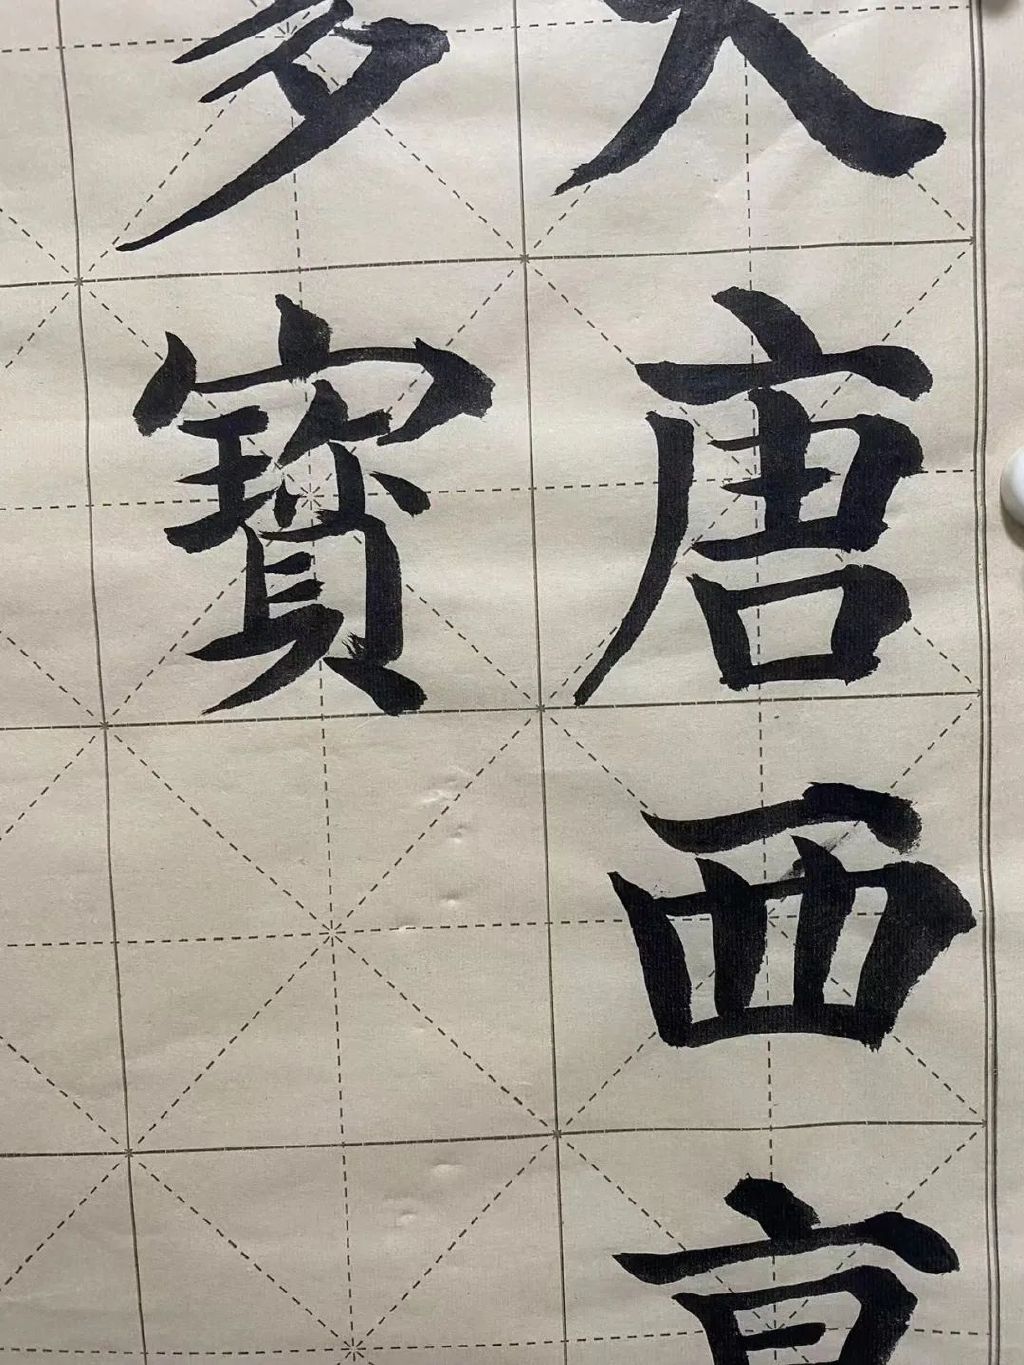 大唐西京
多寶